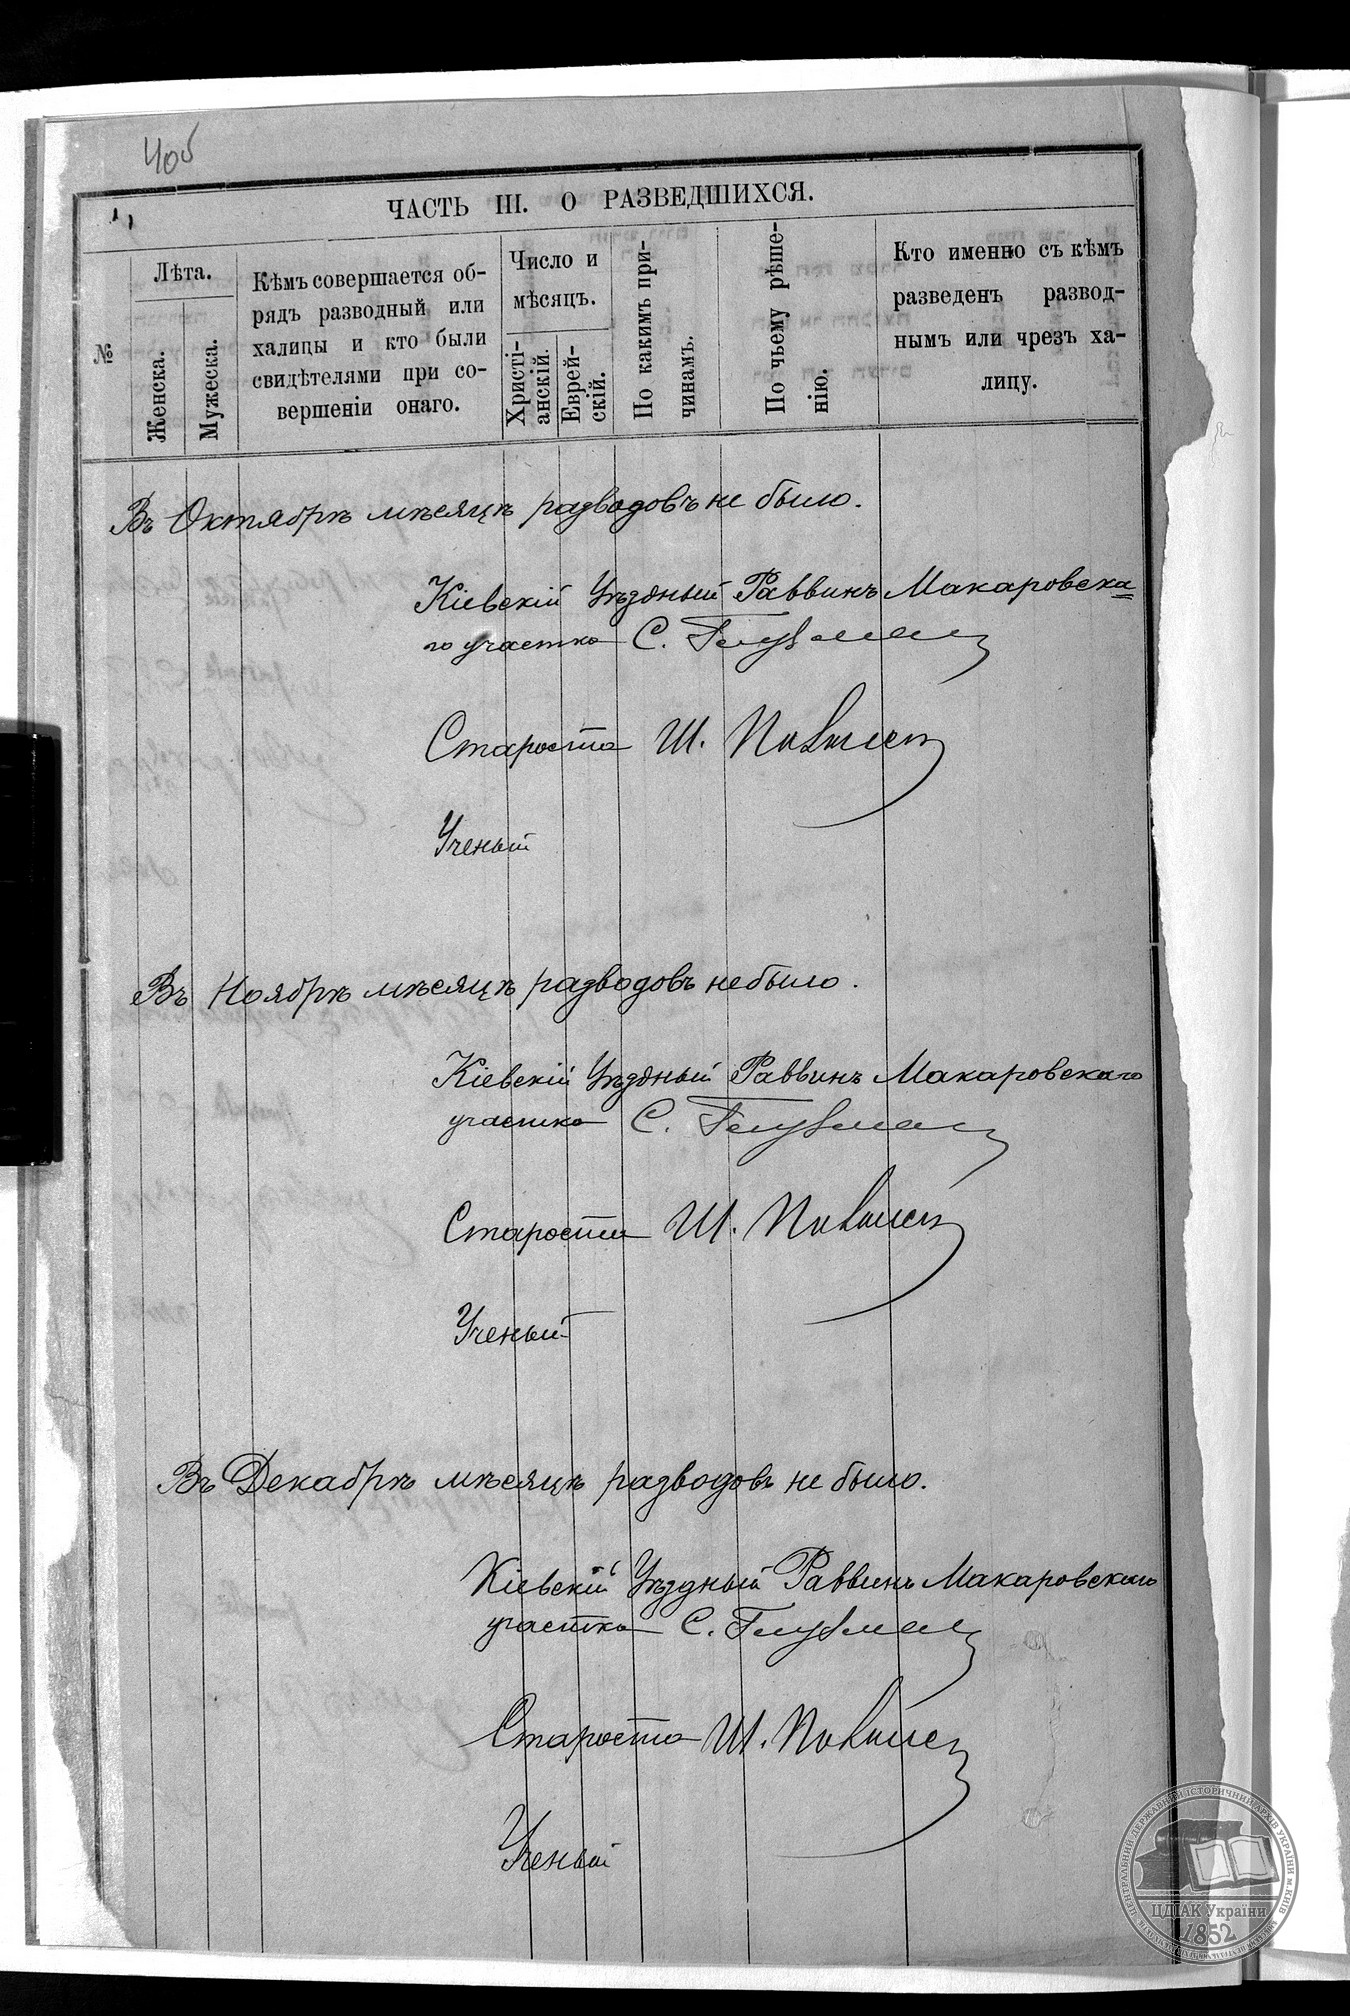 40б
ЧАСТЬ III. О РАЗВЕДШИХСЯ.
№
Лѣта.
Женска.
Мужеска.
Кѣмъ совершается об-
рядъ разводный или
халицы и кто были
свидѣтелями при со-
вершеніи онаго.
Число и
мѣсяцъ.
Христі-
анскій.
Еврей-
скій.
По какимъ при-
чинамъ.
По чьему рѣше-
нію.
Кто именно съ кѣмъ
разведенъ развод-
нымъ или чрезъ ха-
лицу.
Въ Октябрѣ мѣсяцѣ разводовъ не было.
Кіевскій Уѣздный Раввинъ Макаровска=
го участка С.
Староста Ш.
Ученый
Въ Ноябрѣ мѣсяцѣ разводовъ не было.
Кіевскій Уѣздный Раввинъ Макаровскаго
участка С.
Староста Ш.
Ученый
Въ Декабрѣ мѣсяцѣ разводовъ не было.
Кіевскій Уѣздный Раввинъ Макаровскаго
участка С.
Староста Ш.
Ученый
ЦЕНТРАЛЬНИЙ ДЕРЖАВНИЙ ІСТОРИЧНИЙ АРХІВ УКРАЇНИ м.КИЇВ
ЦДІАК України
1852